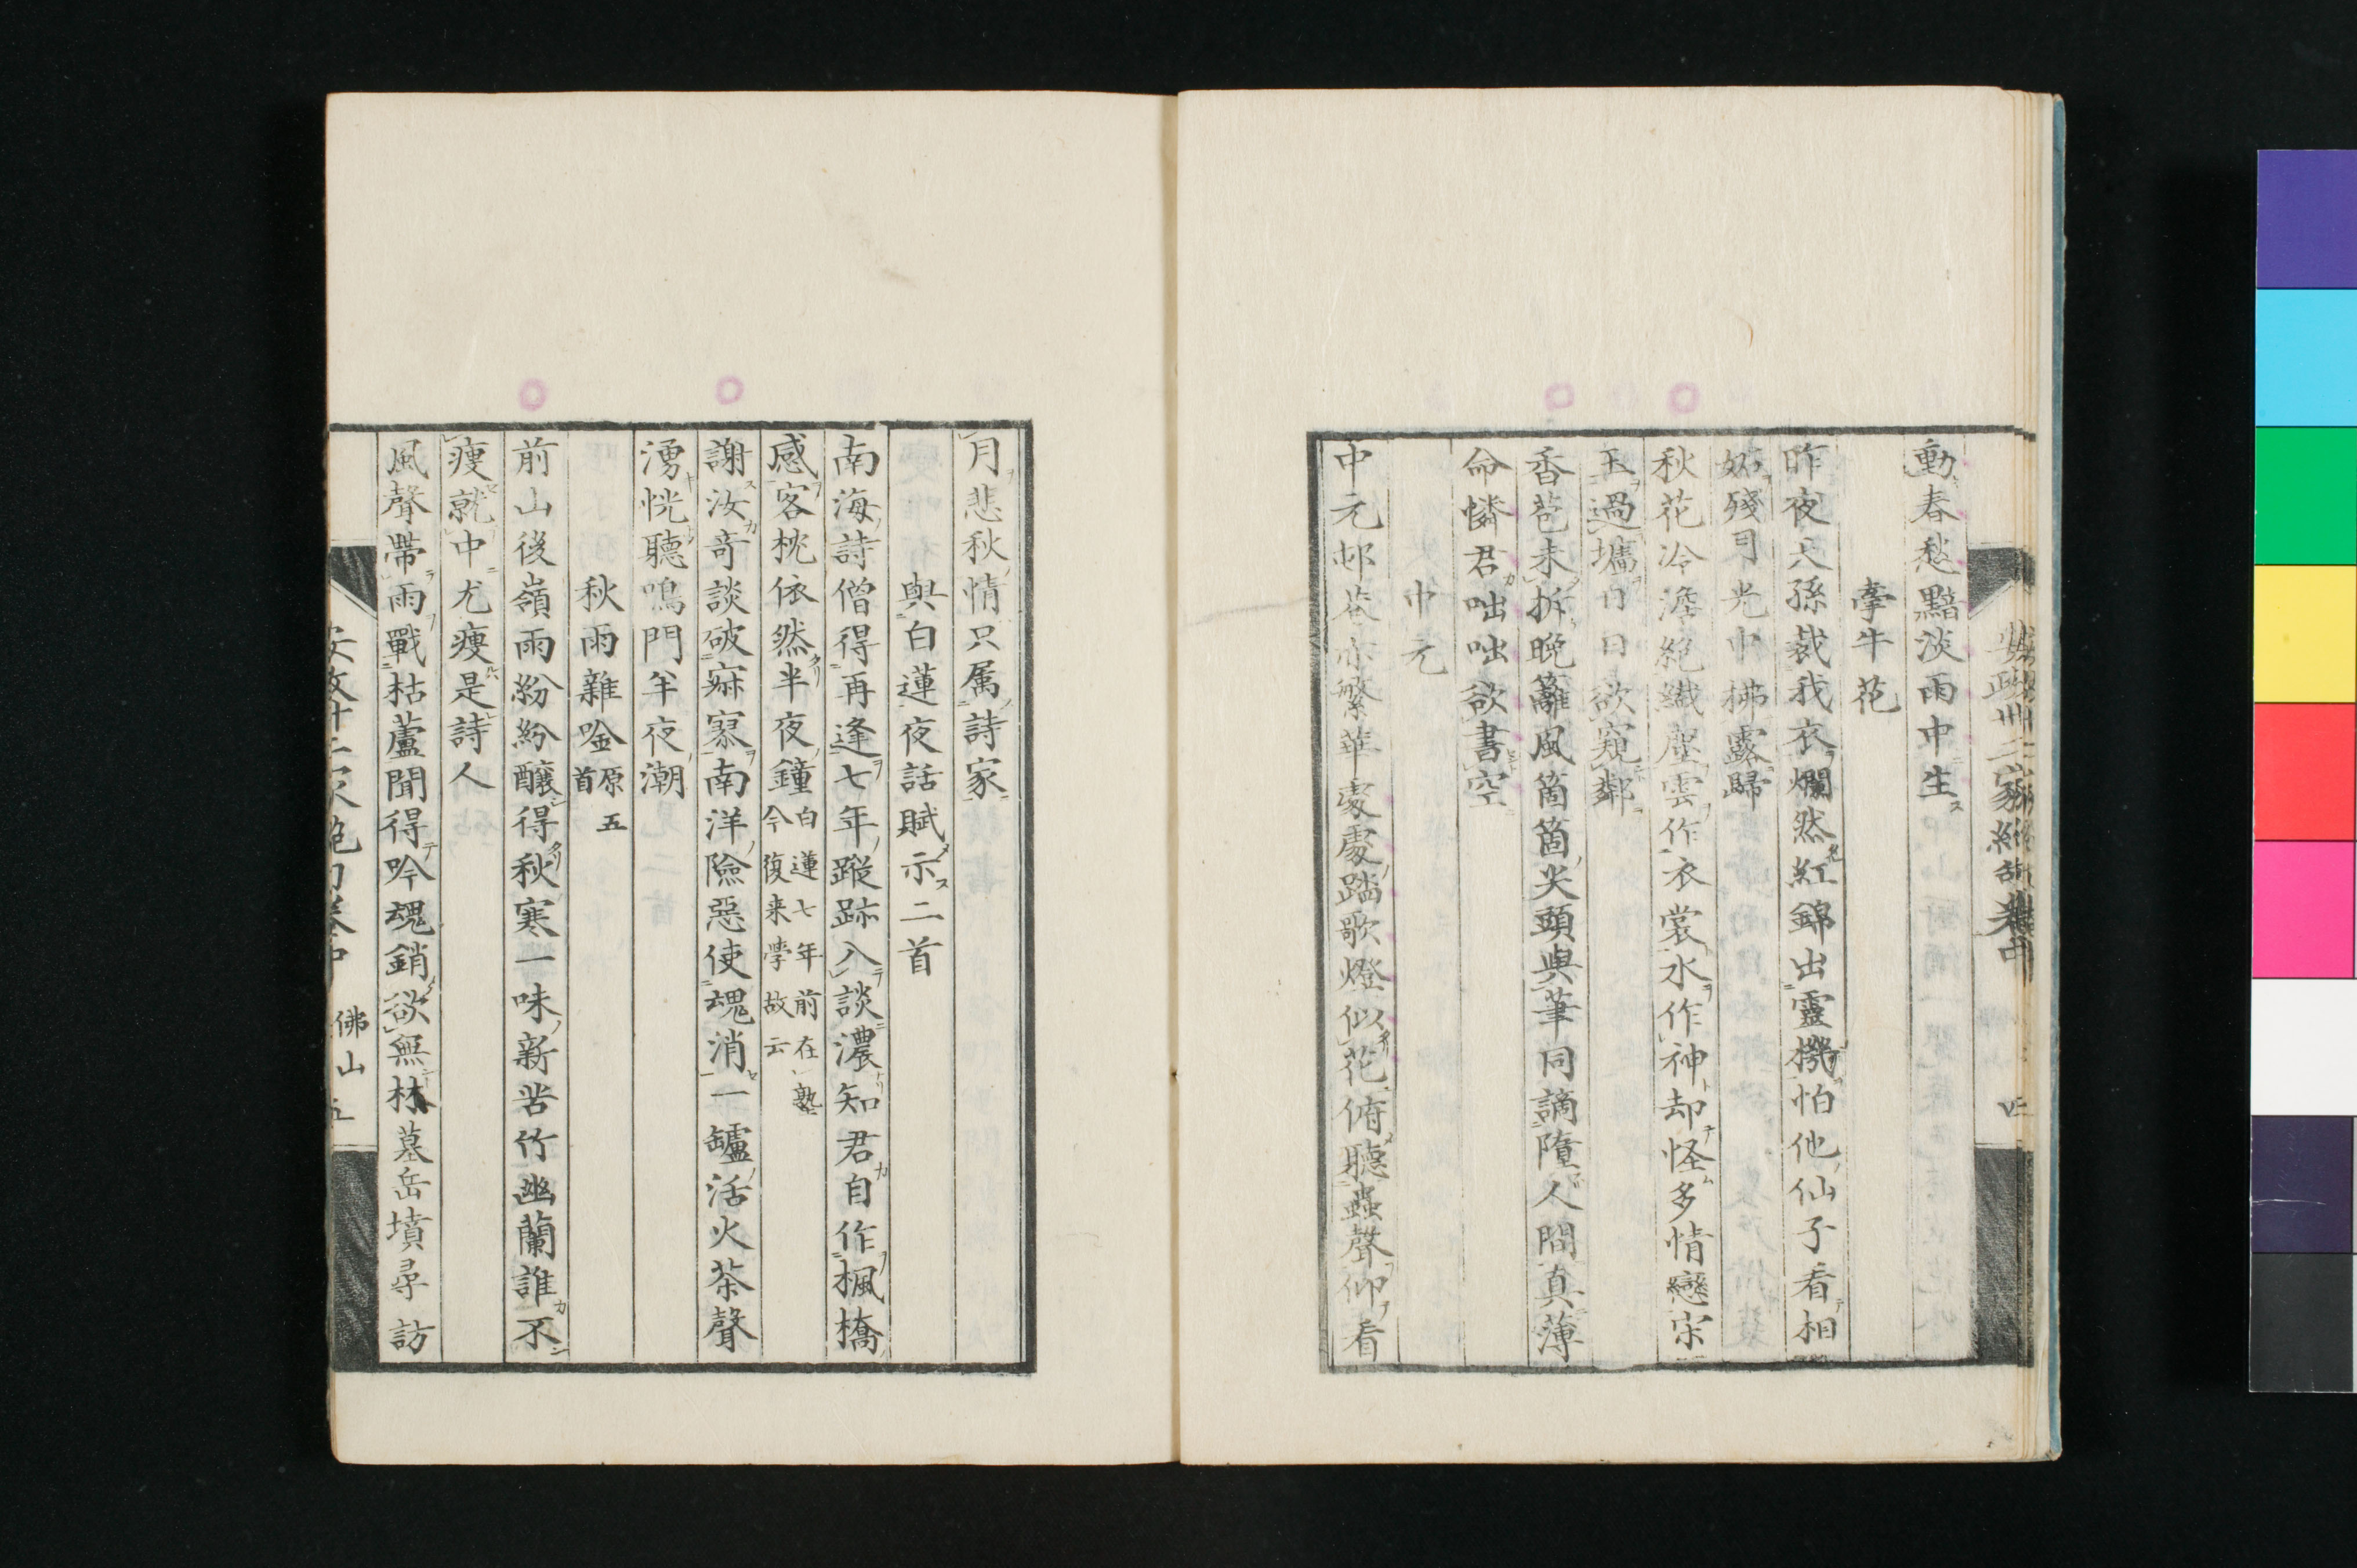 動春愁黯淡雨中生
牽牛花
昨夜天孫裁我衣爛然紅錦出靈機怕他仙子看相
妬殘月光中拂露歸
秋花冷澹絶纎塵雲作衣裳水作神却怪多情戀宋
玉過墻日日欲窺鄰
香苞未拆晩籬風箇箇尖頭與筆同謫墮人間真薄
命憐君咄咄欲書空
中元
中元邨巷亦繁華處處踏歌燈似花俯聽蟲聲仰看
月悲秋情只属詩家
與白蓮夜話賦示二首
南海詩僧得再逢七年蹤跡入談濃知君自作楓橋
感客枕依然半夜鐘白蓮七年前在塾今復来學故云
謝汝奇談破寂寞南洋險惡使魂消一罏活火茶聲
湧恍聽鳴門半夜潮
秋雨雜唫原五首
前山後嶺雨紛紛釀得秋寒一味新苦竹幽蘭誰不
瘦就中尤瘦是詩人
風聲帶雨戰枯蘆聞得吟魂銷欲無林墓岳墳尋訪
安政十二家絶句卷中 佛山 五